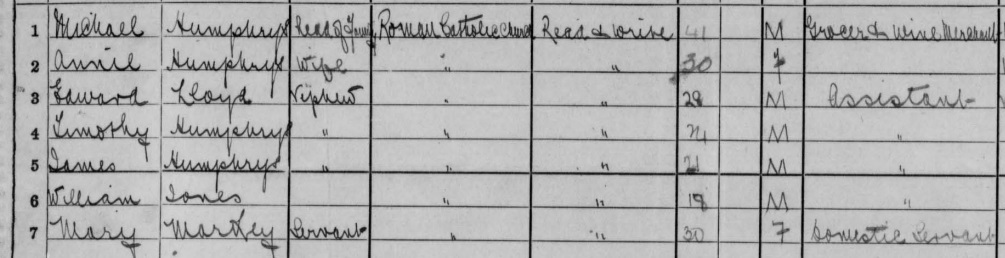 1 Michael Humphrys Head of Family Roman Catholic Church Read & write 41 M Grocer & Wine Merchant
2 Annie Humphrys Wife " " 30 F
3 Edward Lloyd Nephew " " 28 M Assistant
4 Timothy Humphrys " " " M "
5 James Humphrys " " " 21 M "
6 William Jones " " 18 M "
7 Mary Martley Servant " " 30 F Domestic Servant